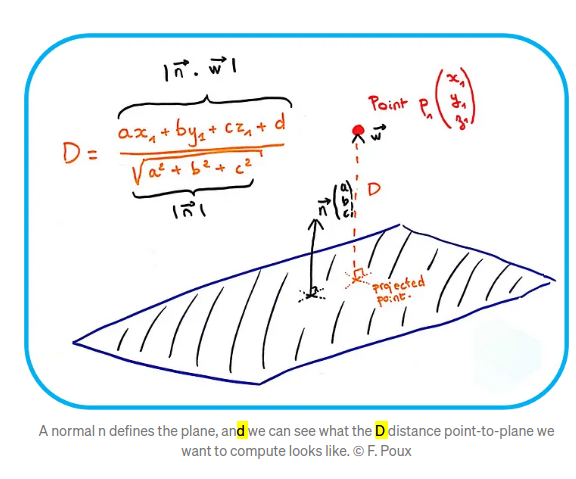 |n⃗ . w⃗|
D = (ax₁ + by₁ + cz₁ + d) / √(a² + b² + c²)
|n⃗|
Point P₁ (x₁ y₁ z₁)
w⃗
D
n⃗ (a b c)
projected
point.
A normal n defines the plane, and we can see what the D distance point-to-plane we
want to compute looks like. © F. Poux